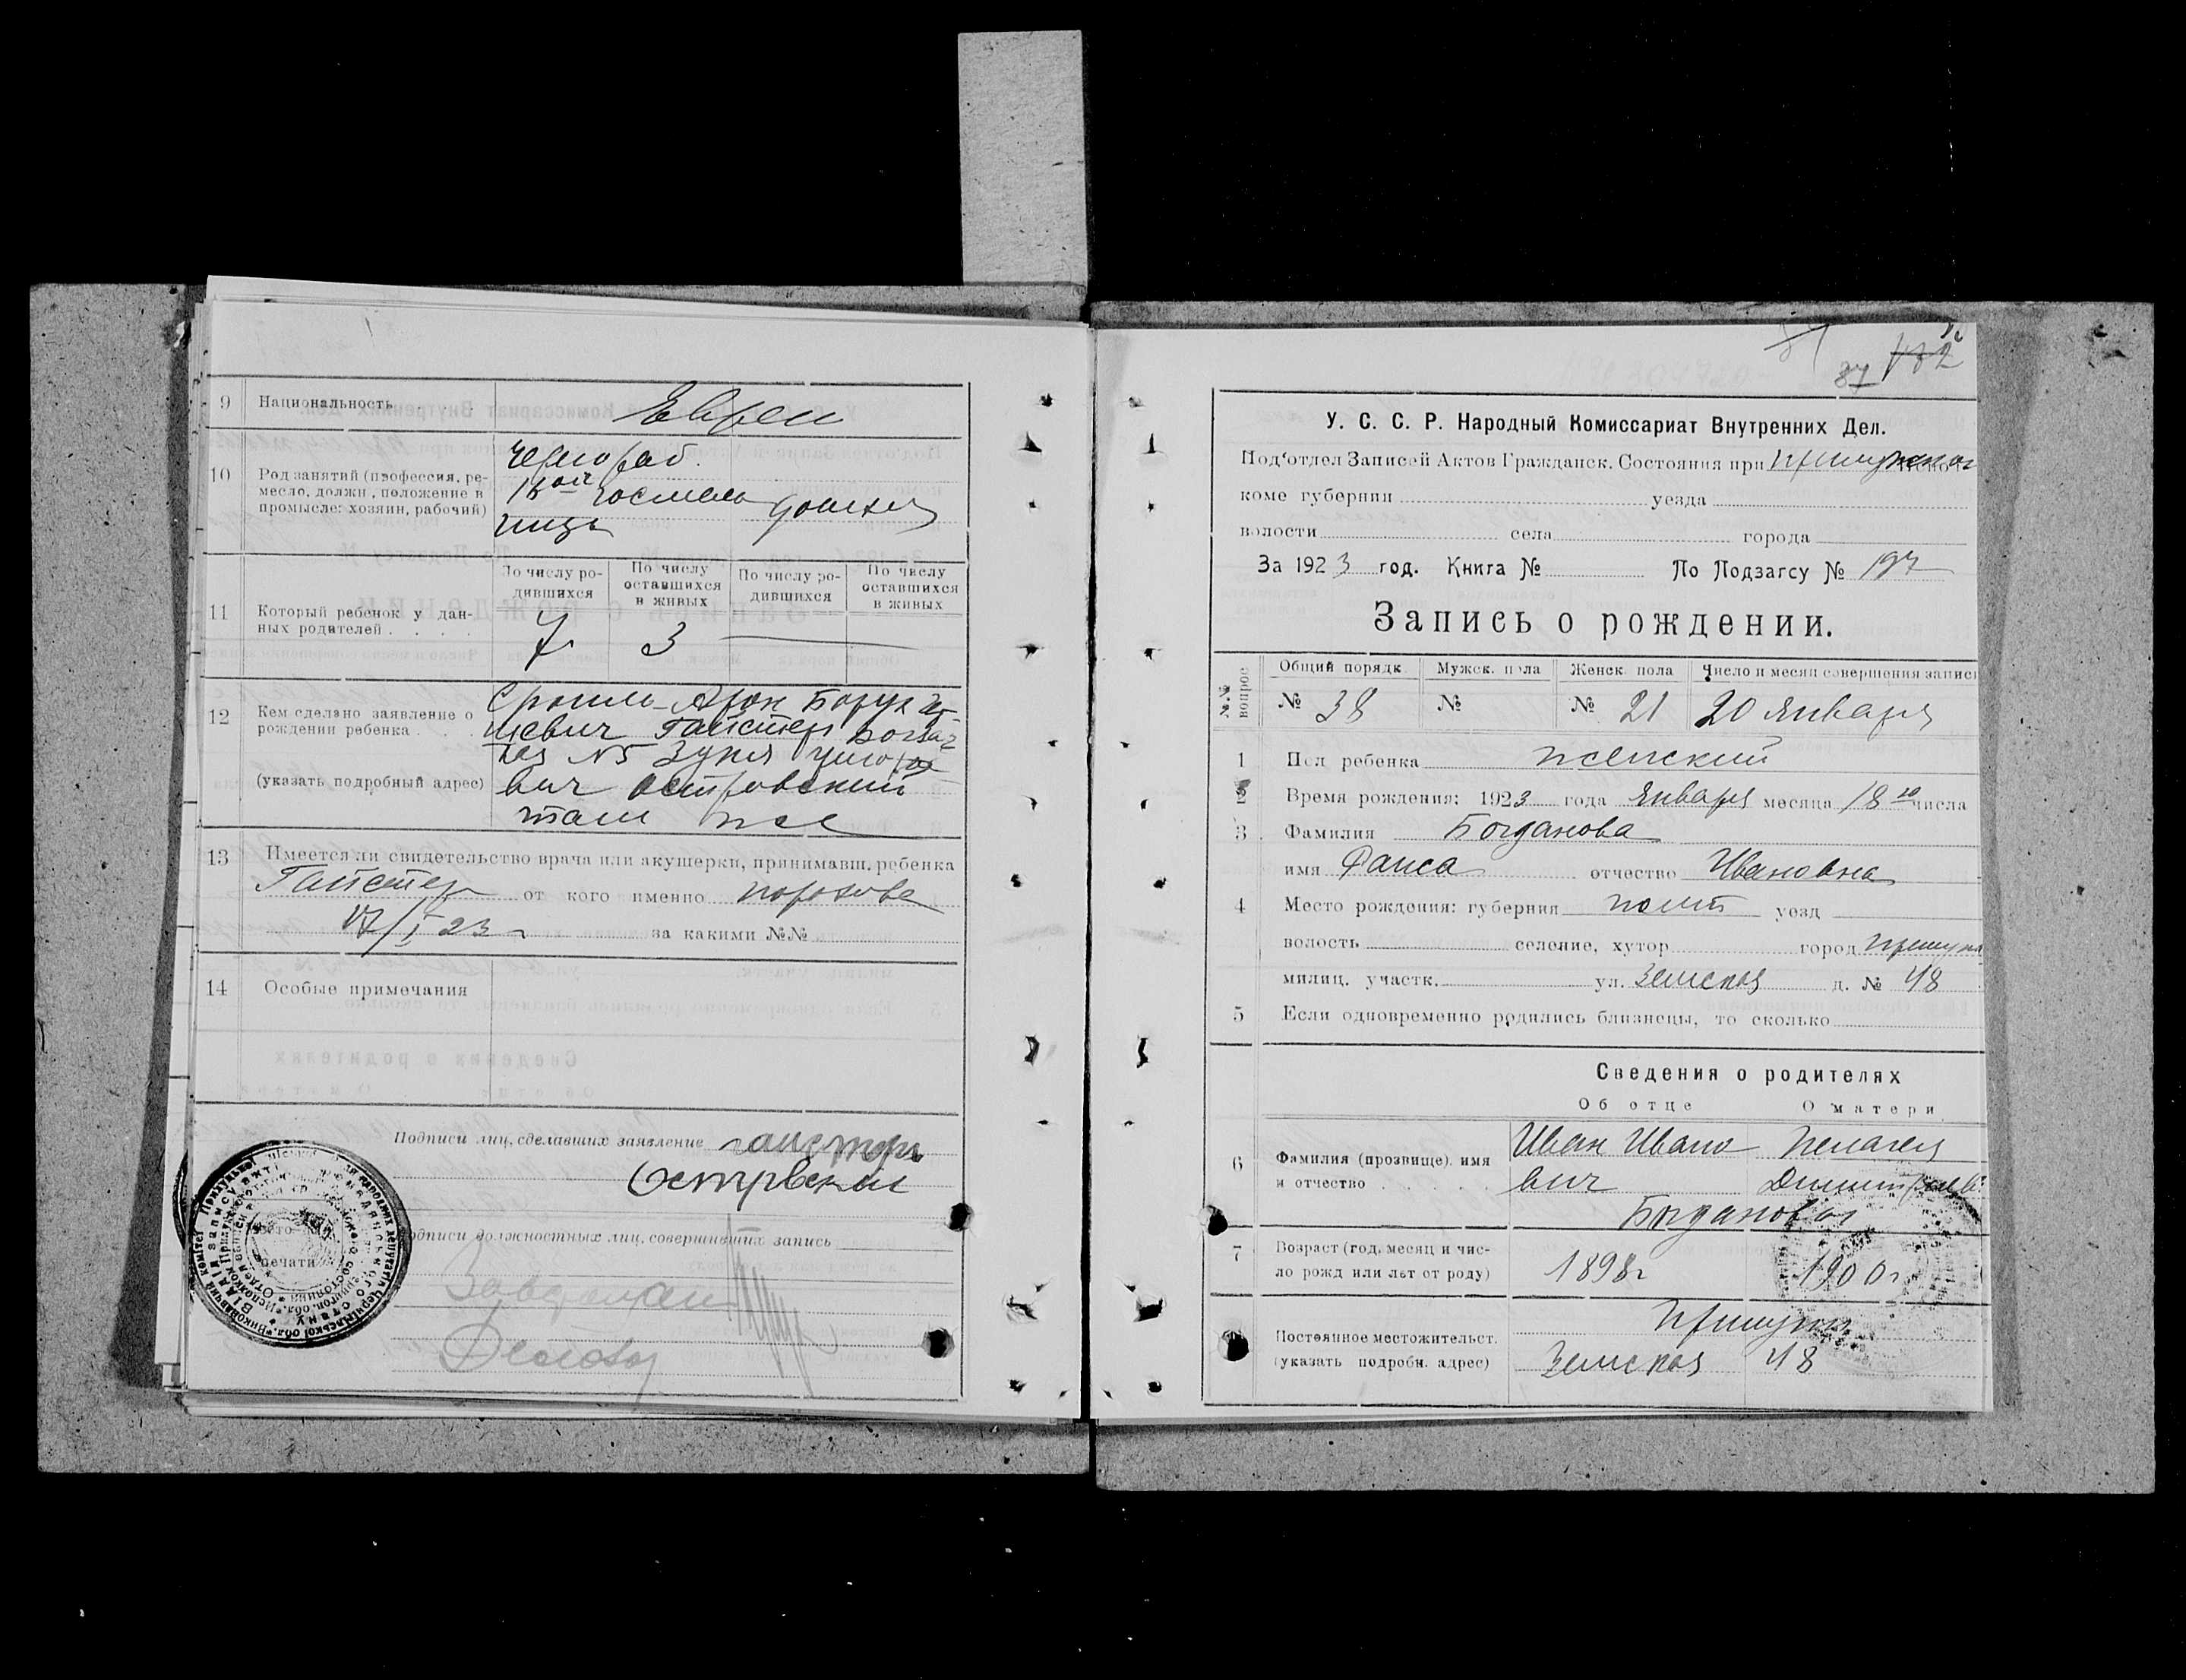 9 Национальность Евреи
10 Род занятий (профессия, ре-
месло, должн., положение в
промысле: хозяин, рабочий)
Чернораб.
гостиль
ницы
домхоз
11 Который ребенок у дан-
ных родителей . . . .
По числу ро-
дившихся
По числу
оставшихся
в живых
По числу ро-
дившихся
По числу
оставшихся
в живых
7 3
12 Кем сделано заявление о
рождении ребенка . . .
(указать подробный адрес)
Сроиль-Арон Борух
Гайстер
№5 Зуня
вич Островский
там же
13 Имеется ли свидетельство врача или акушерки, принимавш. ребенка
Гайстер от кого именно
17/I 23 г за какими №№
14 Особые примечания
Подписи лиц, сделавших заявление Гайстер
Островский
Подписи должностных лиц, совершивших запись
место
печати
87 182
У. С. С. Р. Народный Комиссариат Внутренних Дел.
Под'отдел Записей Актов Гражданск. Состояния при
коме губернии уезда
волости села города
За 1923 год. Книга № По Подзагсу № 197
Запись о рождении.
№№ вопрос
Общий порядк. Мужск. пола Женск. пола Число и месяц совершения записи
№ 38 № № 21 20 Января
1 Пол ребенка женский
Время рождения: 1923 года Января месяца 18 го числа
3 Фамилия Богданова
имя Раиса отчество Ивановна
4 Место рождения: губерния Полт уезд
волость селение, хутор город Прилуки
милиц. участк. ул. Земская д. № 48
5 Если одновременно родились близнецы, то сколько
Сведения о родителях
Об отце О матери
6 Фамилия (прозвище), имя
и отчество . . . . .
Иван Ивано
вич
Пелагея
Дмитриев
Богдановы
7 Возраст (год, месяц и чис-
ло рожд или лет от роду)
1898г 1900г
Постоянное местожительст.
(указать подробн. адрес)
Прилуки
Земская 48